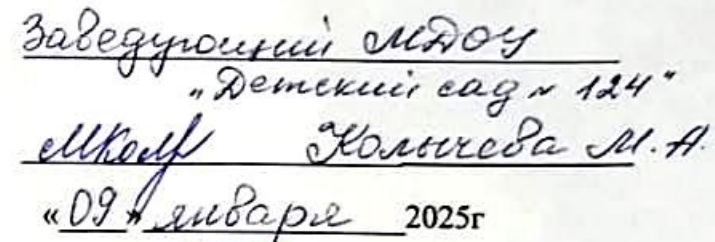 Заведующий МДОУ
„Детский сад № 124"
МКолы Колычева М.А.
«09» января 2025г